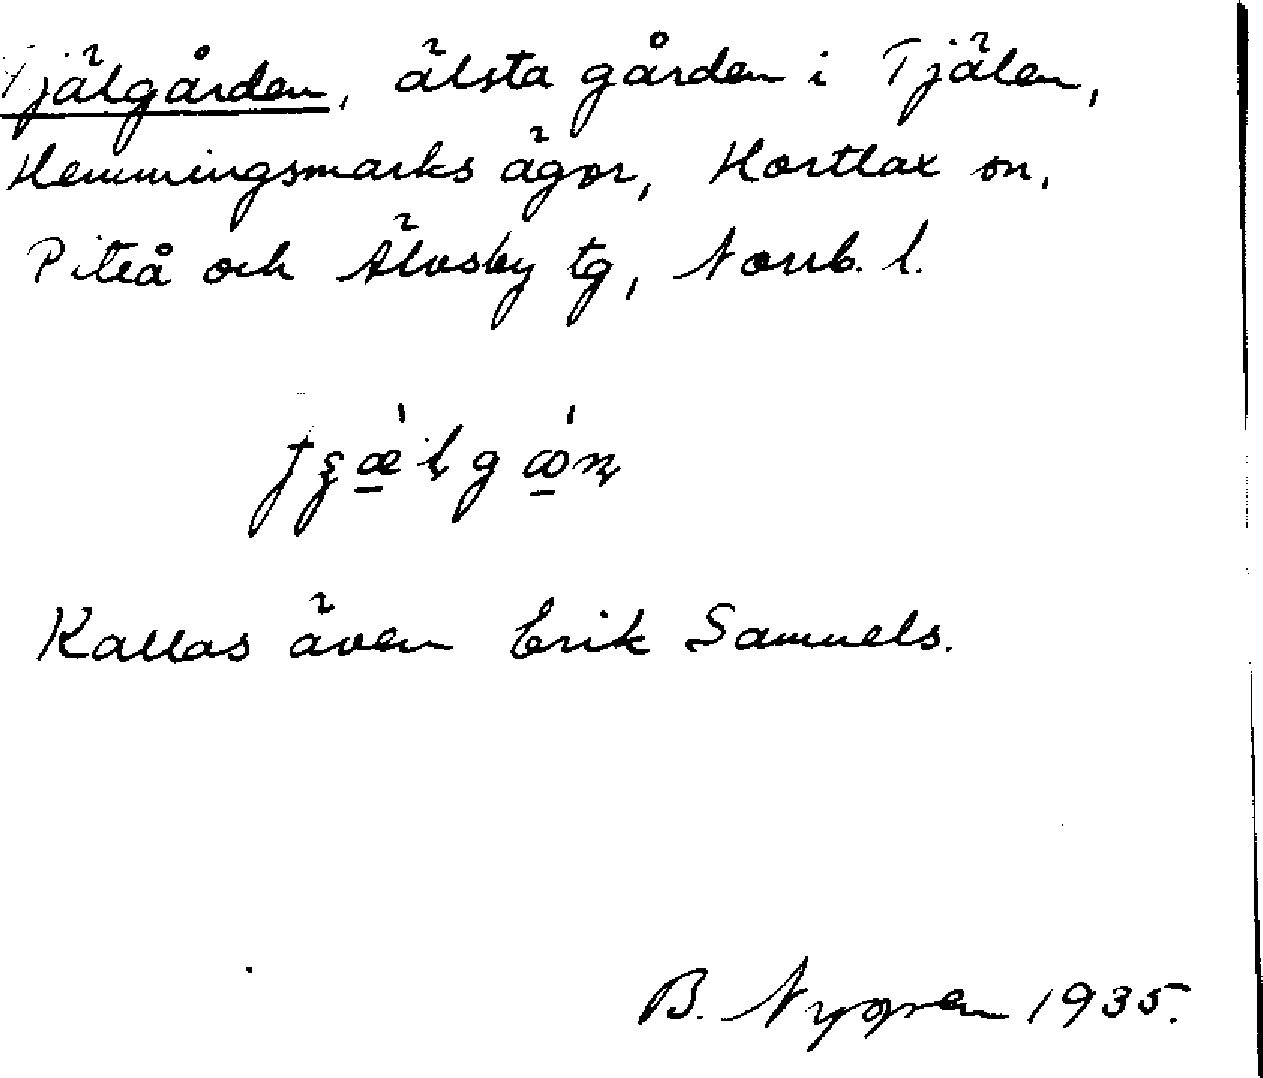 Tjälgården, älsta gården i Tjälen,
Hemmingsmarks ägor, Hortlax sn,
Piteå och Älvsby tg, Norrb. l.
Kallas även Erik Samuels.
B. Nygren 1935.